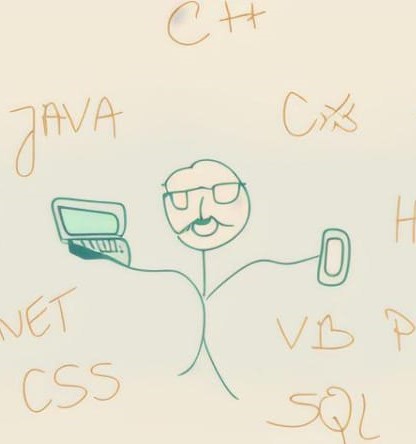 C++
JAVA
C#
H
NET
VB P
CSS
SQL